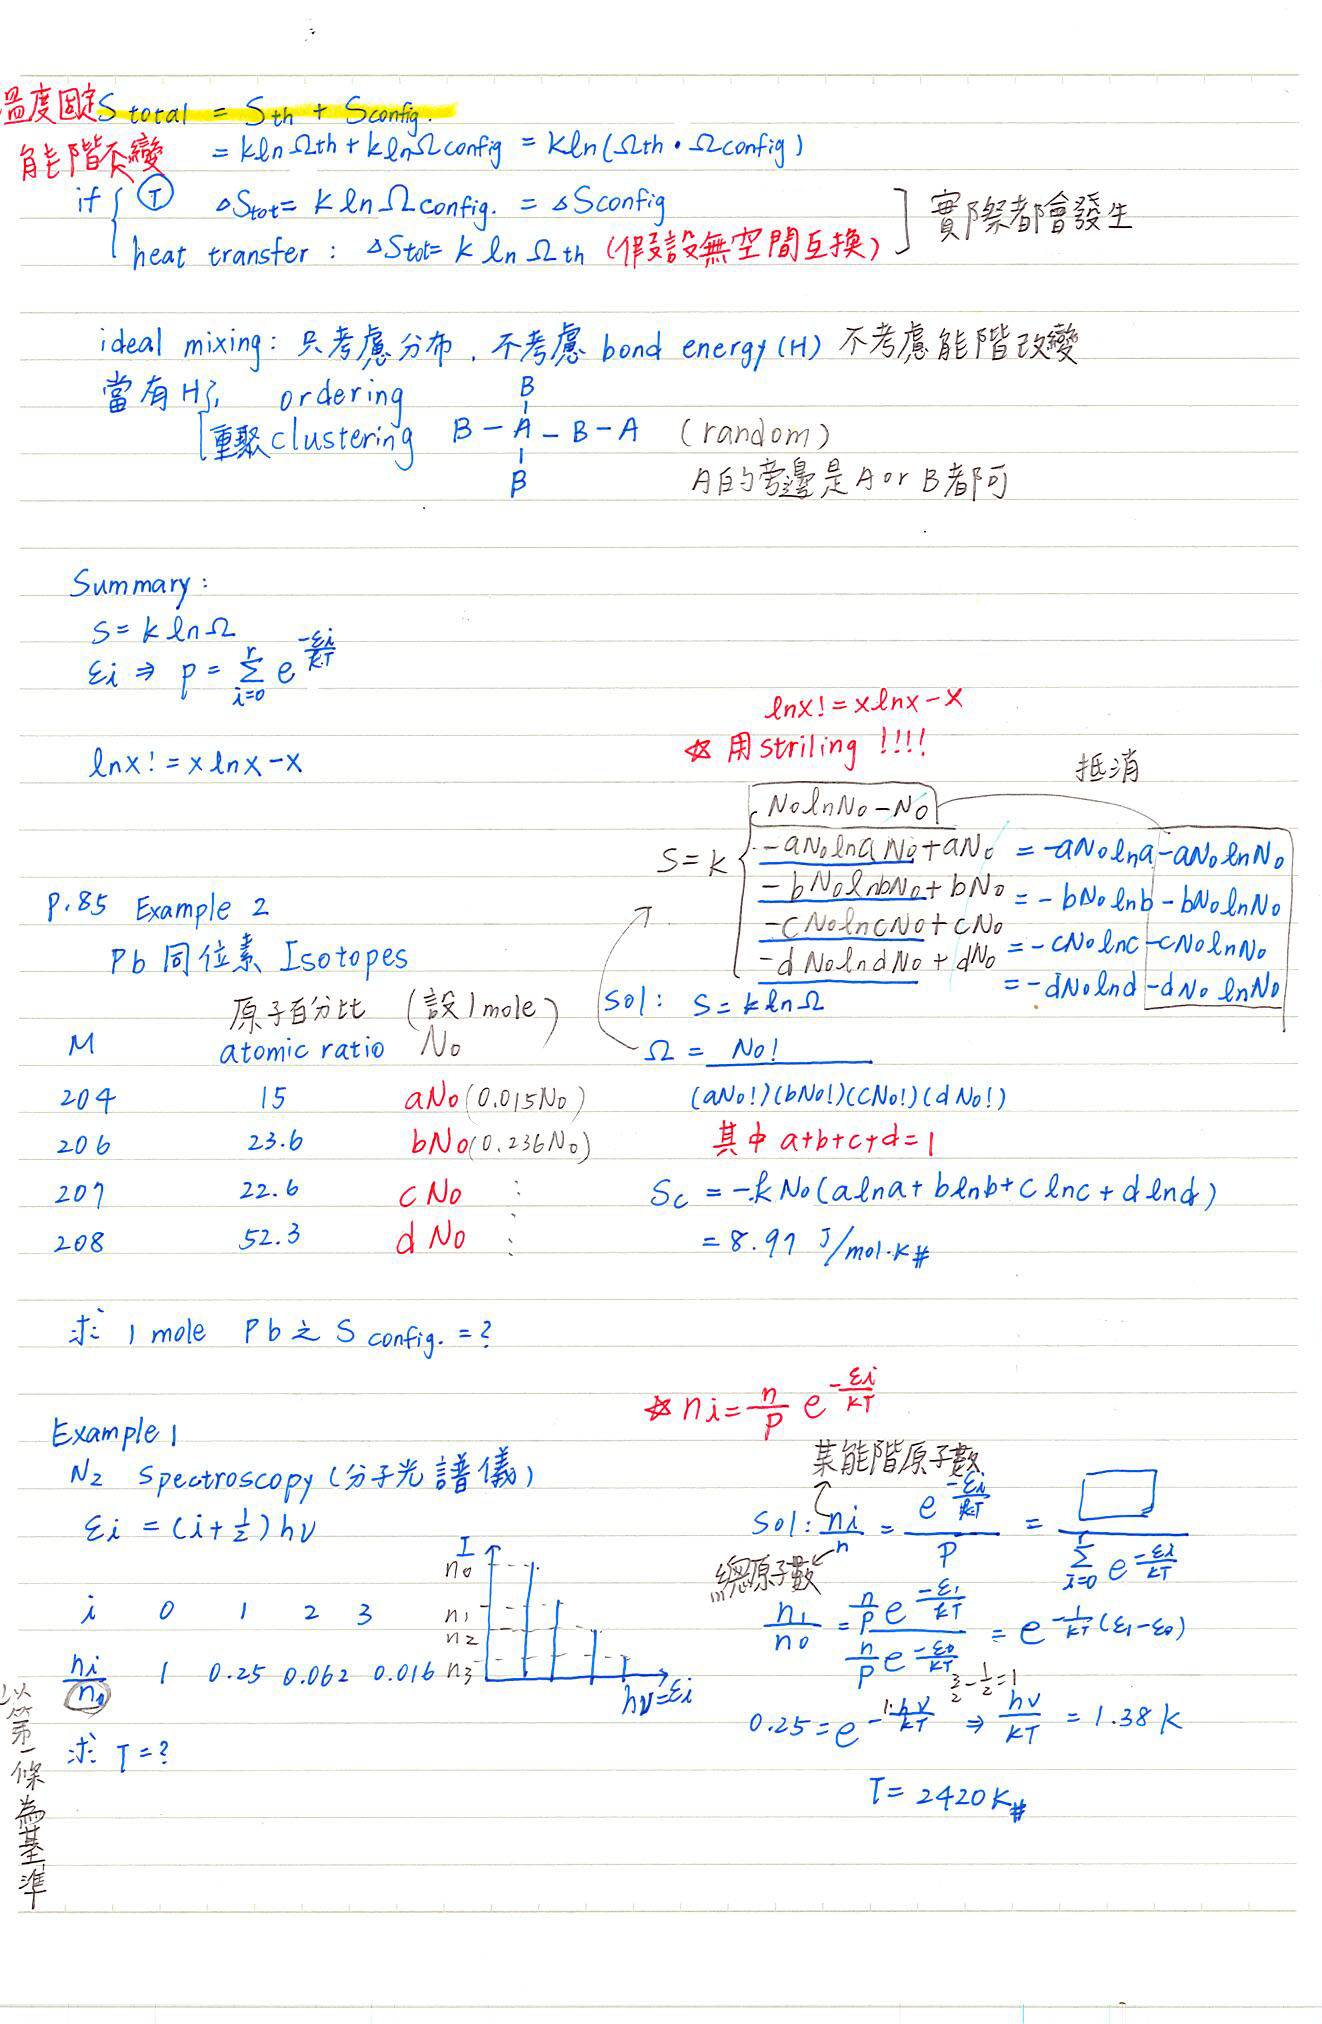 溫度固定 S total = Sth + Sconfig.
能階不變 = kln Ωth + klnΩconfig = kln(Ωth • Ωconfig)
if { Ⓣ ΔStot = k ln Ωconfig. = ΔSconfig
heat transfer : ΔStot = k ln Ωth (假設無空間互換) ] 實際都會發生
ideal mixing: 只考慮分布, 不考慮 bond energy (H) 不考慮能階改變
當有H了, ordering
重聚 clustering
B
B - A - B - A (random)
B
A的旁邊是A or B都可
Summary :
S = k ln Ω
εi ⇒ p = Σ_{i=0}^{r} e^{-εi/kT}
lnx! = x lnx - x
lnx! = xlnx - x
☆ 用 striling !!!!
抵消
S = k { N₀lnN₀ - N₀
-aN₀lna N₀ + aN₀ = -aN₀lna - aN₀lnN₀
-bN₀lnbN₀ + bN₀ = -bN₀lnb - bN₀lnN₀
-cN₀lncN₀ + cN₀ = -cN₀lnc - cN₀lnN₀
-dN₀lndN₀ + dN₀ = -dN₀lnd - dN₀ lnN₀
P.85 Example 2
Pb 同位素 Isotopes
原子百分比 (設1mole)
M atomic ratio N₀
204 15 aN₀ (0.015N₀)
206 23.6 bN₀ (0.236N₀)
207 22.6 cN₀ :
208 52.3 dN₀ :
sol: S = k ln Ω
Ω = N₀! / (aN₀!)(bN₀!)(cN₀!)(dN₀!)
其中 a+b+c+d=1
Sc = -kN₀(alna + blnb + clnc + dlnd)
= 8.97 J/mol·K #
求: 1 mole Pb 之 S config. = ?
☆ ni = n/p e^{-εi/kT}
Example 1
N₂ Spectroscopy (分子光譜儀)
εi = (i + 1/2) hν
i 0 1 2 3
ni/n₀ 1 0.25 0.062 0.016
以第一條為基準
求: T = ?
I
n₀
n₁
n₂
n₃
hν=εi
某能階原子數
Sol: ni/n = e^{-εi/kT} / P = □ / Σ_{i=0}^{r} e^{-εi/kT}
總原子數
n₁/n₀ = (n/p e^{-ε₁/kT}) / (n/p e^{-ε₀/kT}) = e^{-1/kT (ε₁-ε₀)}
3/2 - 1/2 = 1
0.25 = e^{-1·hν/kT} ⇒ hν/kT = 1.38 k
T = 2420 K #